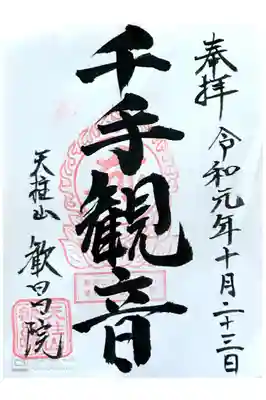 奉拝 令和元年十月二十三日
千手観音
天柱山 歓喜院